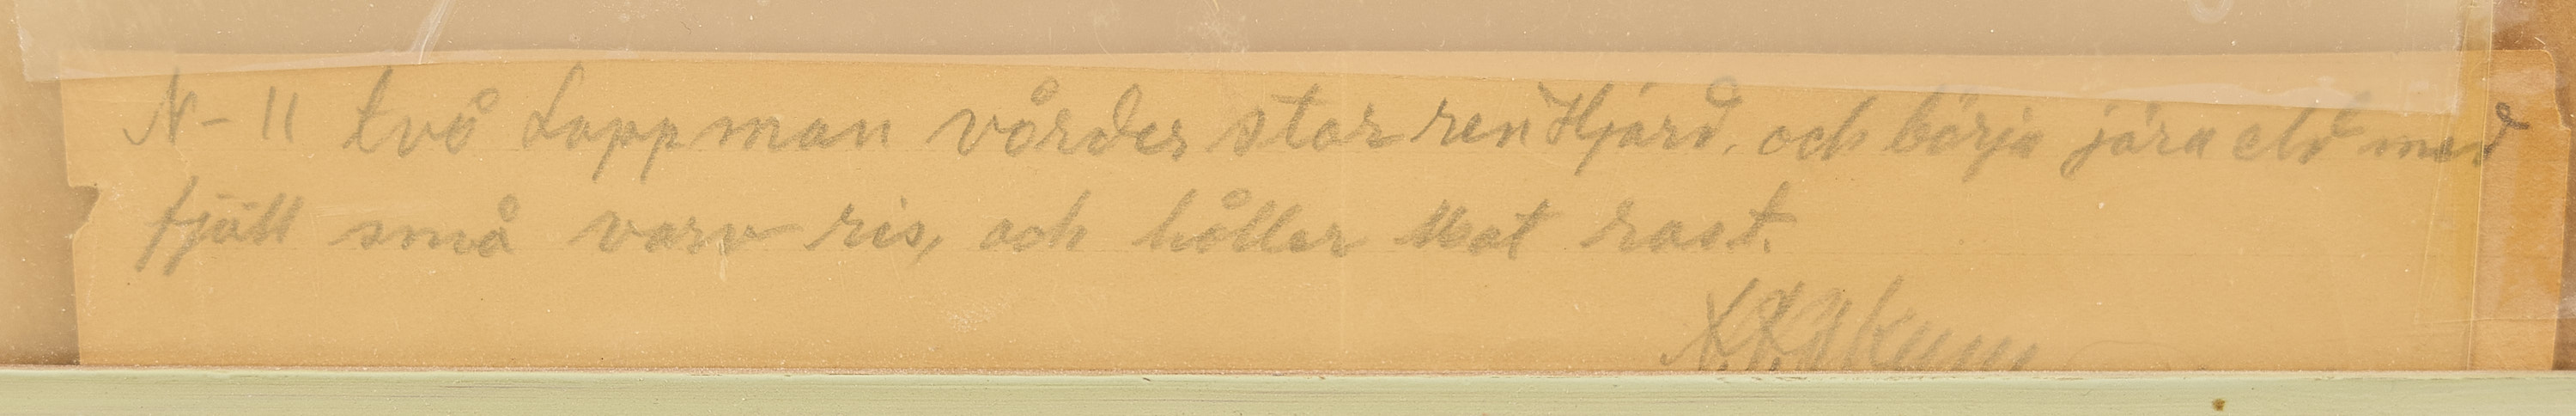 N-11 två Lappman vårder stor ren Hjärd, och börja jära eld med
fjäll små varv ris, och håller Mat rast.
N. N. Skum